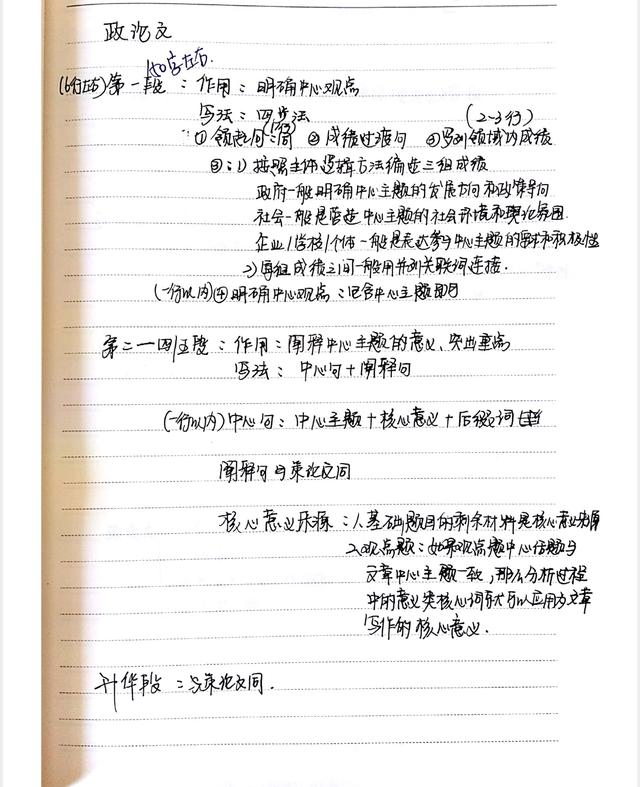 政论文
150字左右.
(6行左右)第一段：作用：明确中心观点
写法：四步法 (2-3行)
①领起句 ②成绩过渡句 ③写列领域内成绩
③：1)按照主体逻辑方法编造三组成绩
政府一般明确中心主题的发展方向和政策导向
社会一般是营造中心主题的社会环境和舆论氛围
企业/学校/个体一般是表达参与中心主题的需求和积极性
2)每组成绩之间一般用并列关联词连接.
(一行以内)④明确中心观点：包含中心主题即可
第二一四/五段：作用：阐释中心主题的意义、突出重点
写法：中心句+阐释句
(一行以内)中心句：中心主题+核心意义+后缀词
阐释句与策论文同
核心意义来源：1、基础题目的剩余材料是核心意义来源
2、观点题：如果观点题中心话题与
文章中心主题一致，那么分析过程
中的意义类核心词可以应用为文章
写作的核心意义.
升华段：与策论文同.